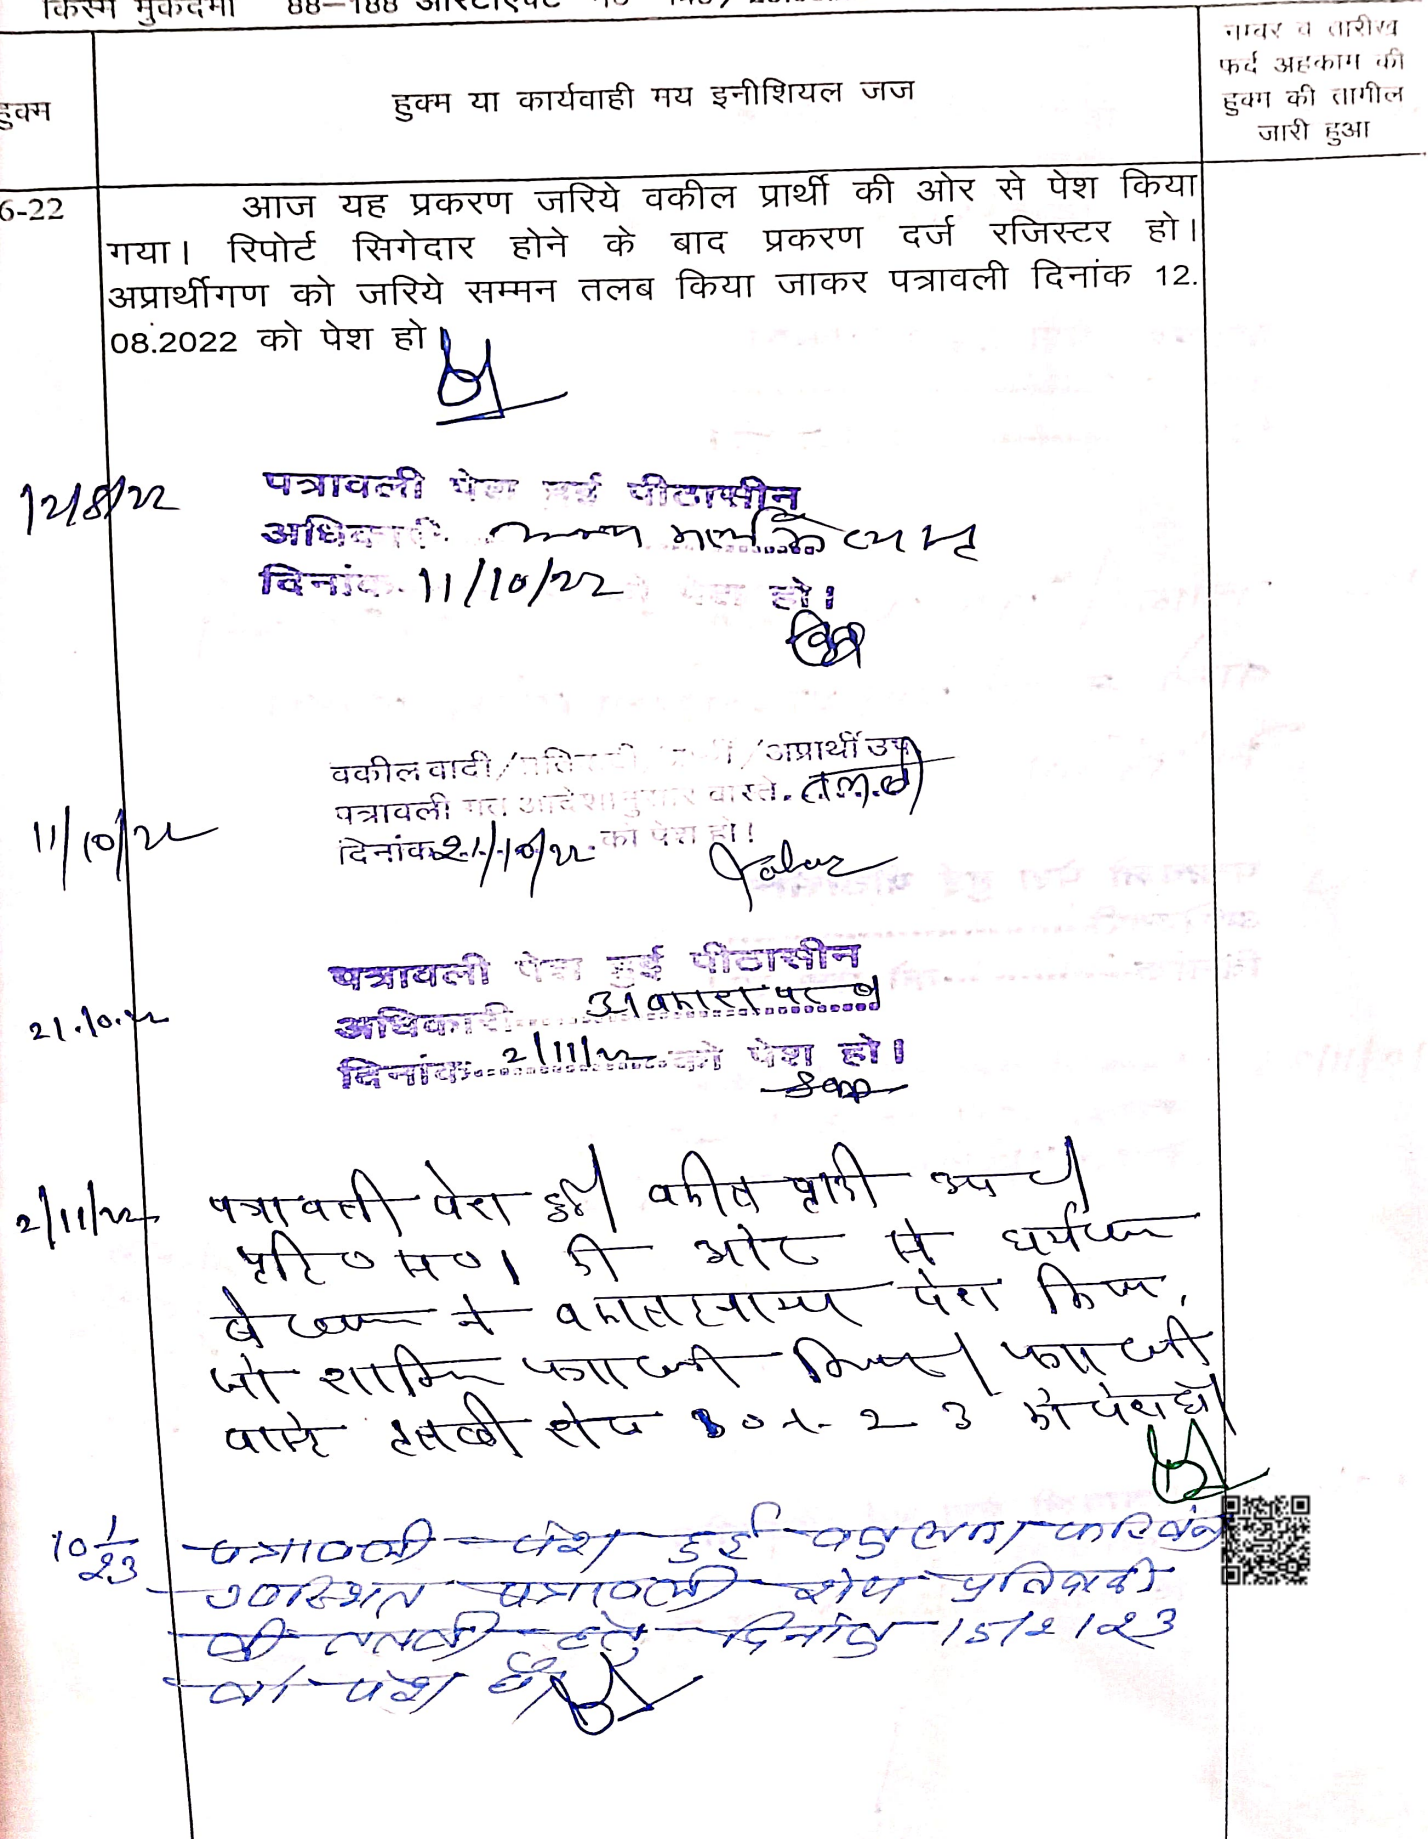 किस्म मुकदमा 88–188
हुक्म
हुक्म या कार्यवाही मय इनीशियल जज
नम्बर व तारीख
फर्द अहकाम की
हुक्म की तामील
जारी हुआ
6-22
आज यह प्रकरण जरिये वकील प्रार्थी की ओर से पेश किया
गया। रिपोर्ट सिगेदार होने के बाद प्रकरण दर्ज रजिस्टर हो।
अप्रार्थीगण को जरिये सम्मन तलब किया जाकर पत्रावली दिनांक 12.
08.2022 को पेश हो।
12/8/22
पत्रावली पेश हुई पीठासीन
अधिकारी
दिनांक 11/10/22 को पेश हो।
11/10/22
वकील वादी/ /अप्रार्थी उप
पत्रावली गत आदेशानुसार वास्ते
दिनांक 21/10/22 को पेश हो।
21.10.22
पत्रावली पेश हुई पीठासीन
अधिकारी अवकाश पर
दिनांक 2/11/22 को पेश हो।
2/11/22
पत्रावली पेश हुई। वकील प्रार्थी उप
की ओर से
ने वकालतनामा पेश किया,
जो शामिल पत्रावली किया। पत्रावली
वास्ते तलबी शेष 10-1-23 को पेश हो।
10 1/23
पत्रावली पेश हुई
उपस्थित पत्रावली शेष प्रतिवादी
की तलबी हेतु दिनांक 15/2/23
को पेश हो।